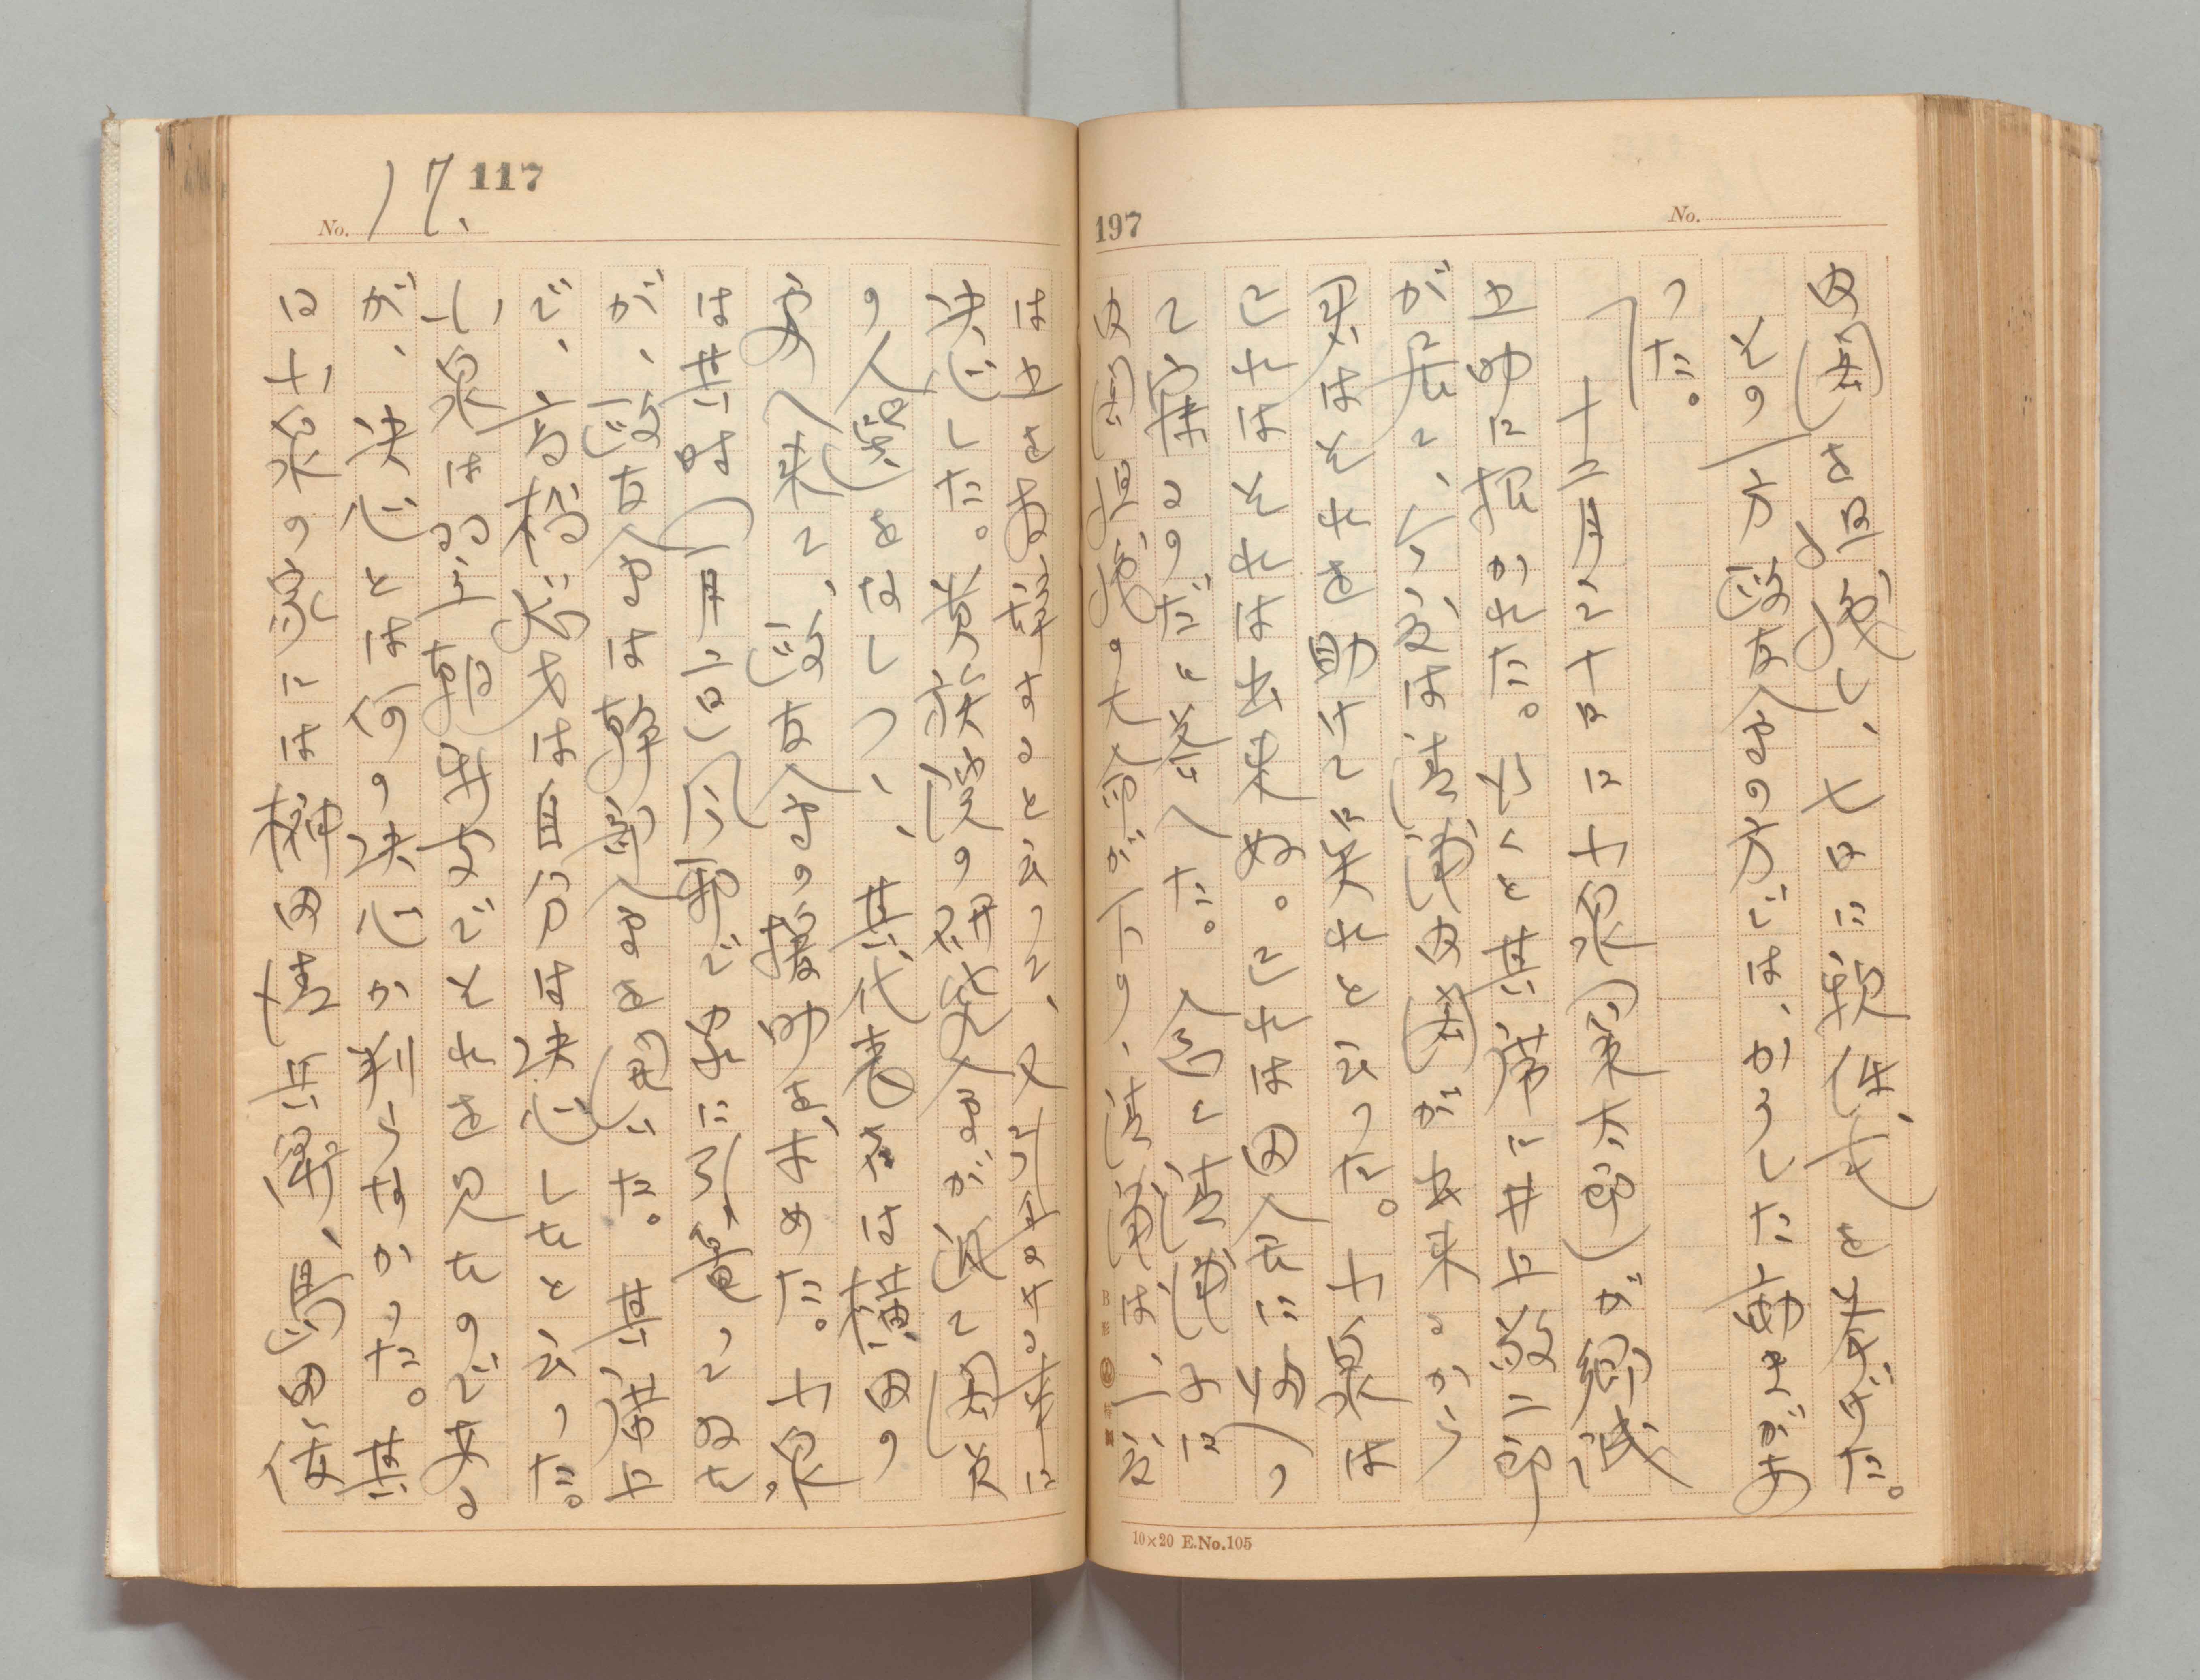 197
No.
内閣を組織し、七日に親任式を挙げた。
その一方政友会の方では、かうした動きがあ
つた。
十二月二十日に小泉(策太郎)が郷誠
之助に招かれた。行くと其席に井上敬二郎
が居て、今度は清浦内閣が出来るから
君はそれを助けて呉れと云つた。小泉は
それはそれは出来ぬ。それは田舎に帰つ
て寝るのだと答へた。会て清浦子に
内閣組織の大命が下り、清浦は、一度
B形 特製
10×20 E.No.105
117
No. 17.
は之をお辞すると云つて、又引き受ける事に
決心した。貴族院の研究会が近て閣員
の人選をなしつゝ、其代表者は横田の
家へ来て、政友会の援助を求めた。小泉
は其時(一月二日)風邪で家に引籠つてゐた
が、政友会は幹部会を開いた。其席上
で、高橋総才は自分は決心したと云つた。
小泉は翌朝新聞でそれを見たのである
が、決心とは何の決心か判らなかつた。其
日小泉の宅には榊田清兵衛、島田俊